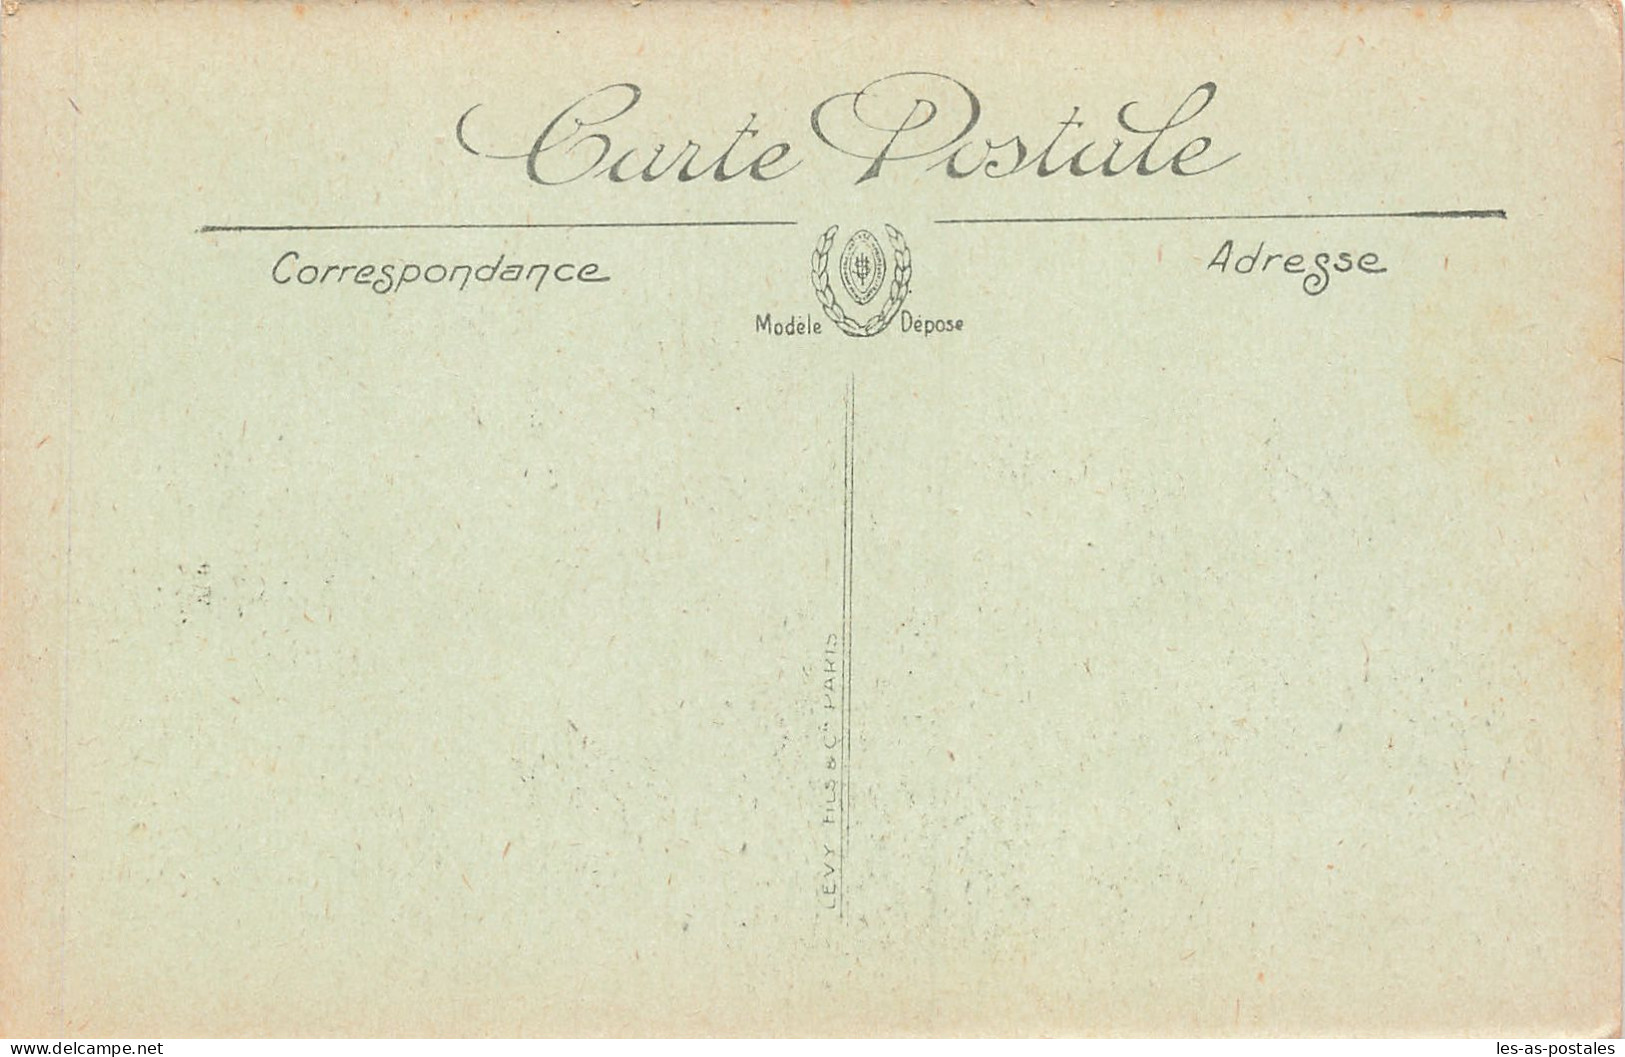 Carte Postale
Correspondance
Adresse
Modèle Déposé
LEVY FILS & Cie PARIS
delcampe.net
les-as-postales